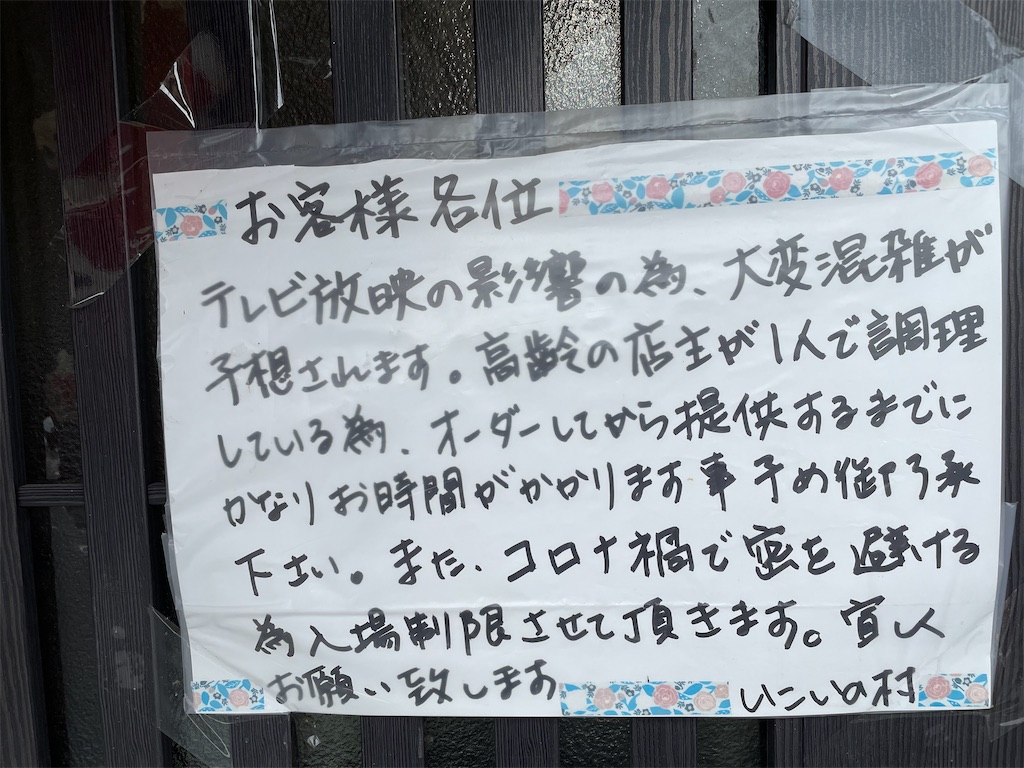 お客様各位
テレビ放映の影響の為、大変混雑が
予想されます。高齢の店主が1人で調理
している為、オーダーしてから提供するまでに
かなりお時間がかかります事予め御了承
下さい。また、コロナ禍で密を避ける
為入場制限させて頂きます。宜しく
お願い致します
いこいの村